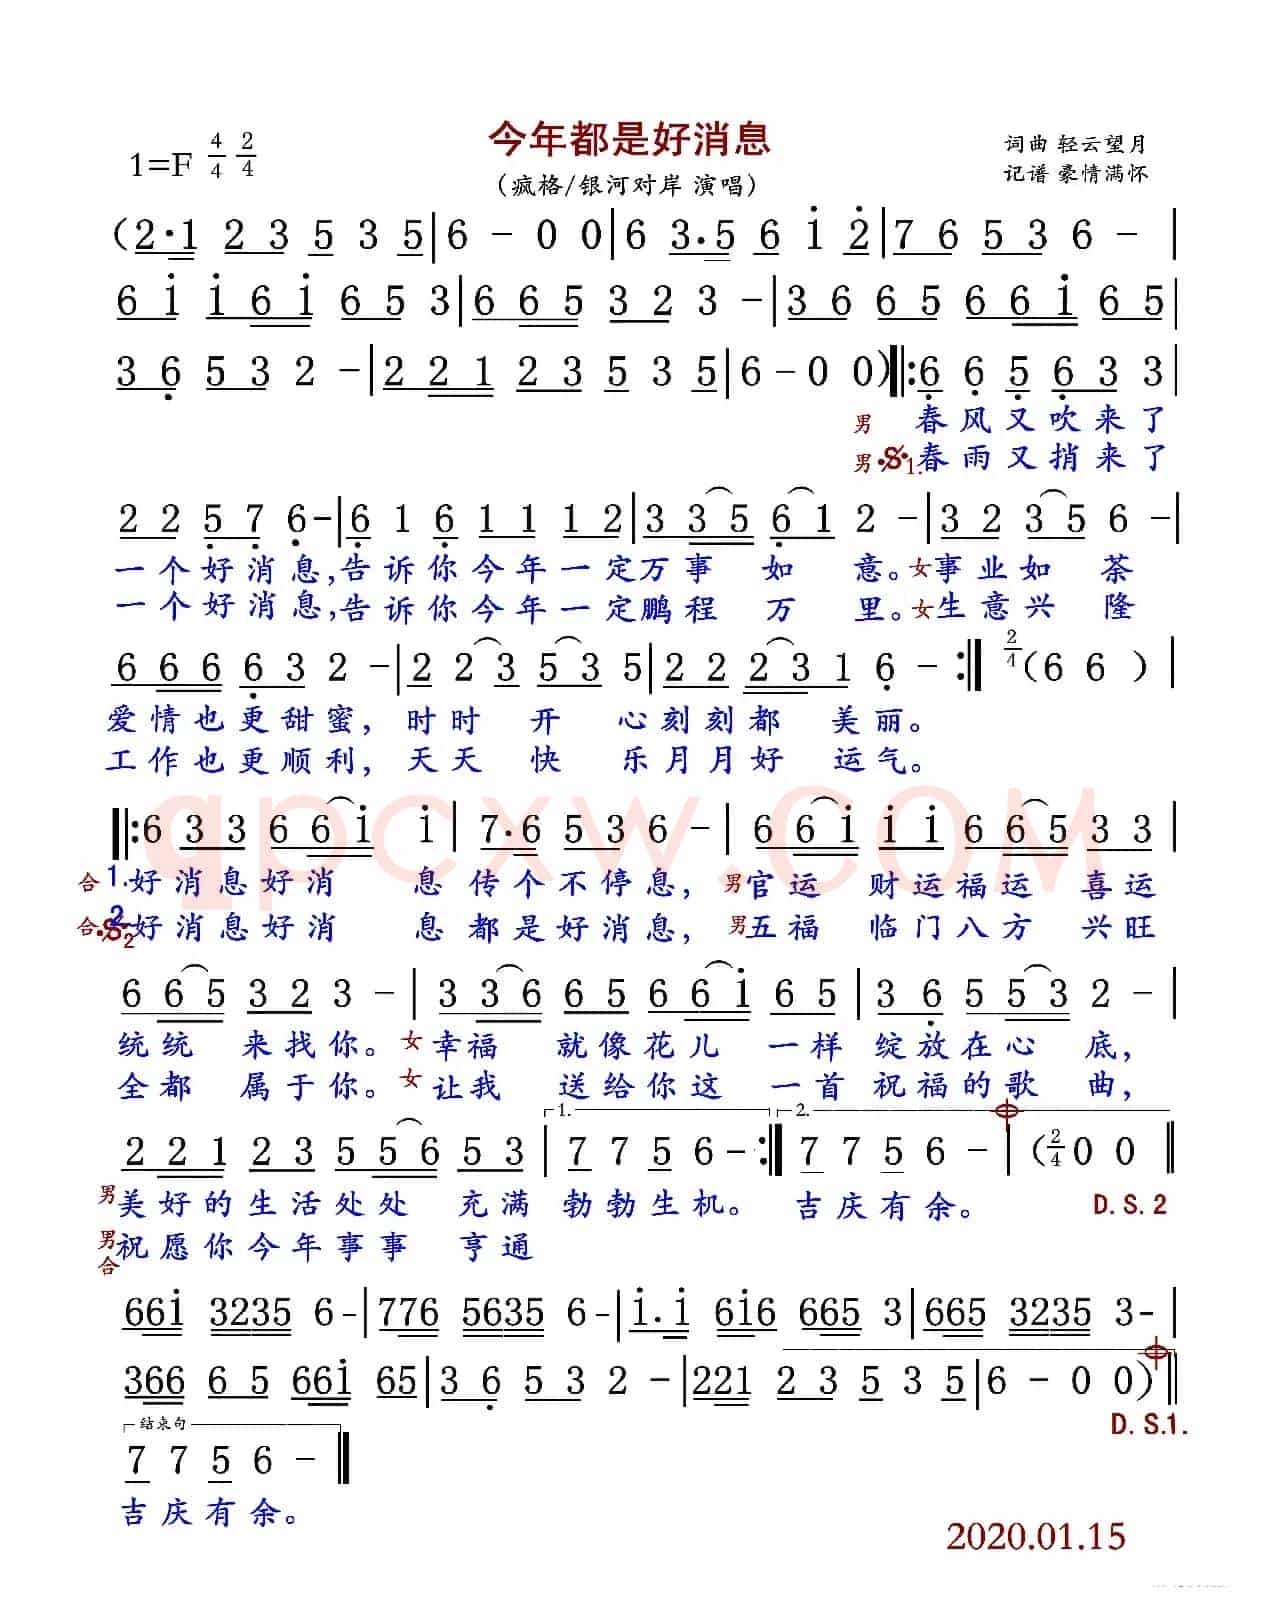 今年都是好消息
1=F 4/4 2/4
(疯格/银河对岸 演唱)
词曲 轻云望月
记谱 豪情满怀
(2·1 2 3 5 3 5|6 - 0 0|6 3.5 6 i 2|7 6 5 3 6 -|
6 i i 6 i 6 5 3|6 6 5 3 2 3 -|3 6 6 5 6 6 i 6 5|
3 6 5 3 2 -|2 2 1 2 3 5 3 5|6 - 0 0)‖:6 6 5 6 3 3|
男 春风又吹来了
男 𝄋1. 春雨又捎来了
2 2 5 7 6-|6 1 6 1 1 1 2|3 3 5 6 1 2 -|3 2 3 5 6 -|
一个好消息,告诉你今年一定万事 如 意。女事业如 荼
一个好消息,告诉你今年一定鹏程 万 里。女生意兴 隆
6 6 6 6 3 2 -|2 2 3 5 3 5|2 2 2 3 1 6 - :‖ 2/4 (6 6 )|
爱情也更甜蜜, 时时 开 心刻刻都 美丽。
工作也更顺利, 天天 快 乐月月好 运气。
qpcxw.COM
‖:6 3 3 6 6 i i|7·6 5 3 6 -|6 6 i i i 6 6 5 3 3|
合 1.好消息好消 息 传个不停息, 男官运 财运福运 喜运
合 𝄋2 2.好消息好消 息 都是好消息, 男五福 临门八方 兴旺
6 6 5 3 2 3 -|3 3 6 6 5 6 6 i 6 5|3 6 5 5 3 2 -|
统统 来找你。女幸福 就像花儿 一样 绽放在心 底,
全都 属于你。女让我 送给你这 一首 祝福的歌 曲,
1. 2.
2 2 1 2 3 5 5 6 5 3|7 7 5 6 - :‖ 7 7 5 6 -|(2/4 0 0 ‖
男美好的生活处处 充满 勃勃生机。 吉庆有余。 D.S.2
男合祝愿你今年事事 亨通
66i 3235 6-|776 5635 6-|i.i 6i6 665 3|665 3235 3-|
366 6 5 66i 65|3 6 5 3 2 -|221 2 3 5 3 5|6 - 0 0)‖
D.S.1.
结束句
7 7 5 6 -‖
吉庆有余。
2020.01.15